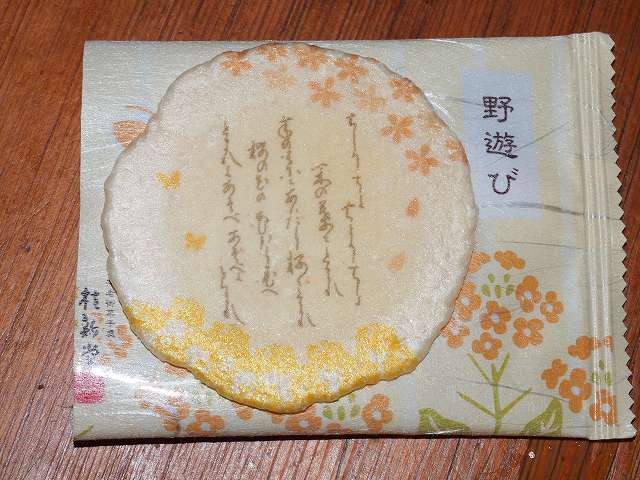 野遊び
ちょうちょ ちょうちょ
菜の葉にとまれ
菜の葉にあいたら 桜にとまれ
桜の花の 花から花へ
とまれよあそべ あそべよとまれ
桂新堂